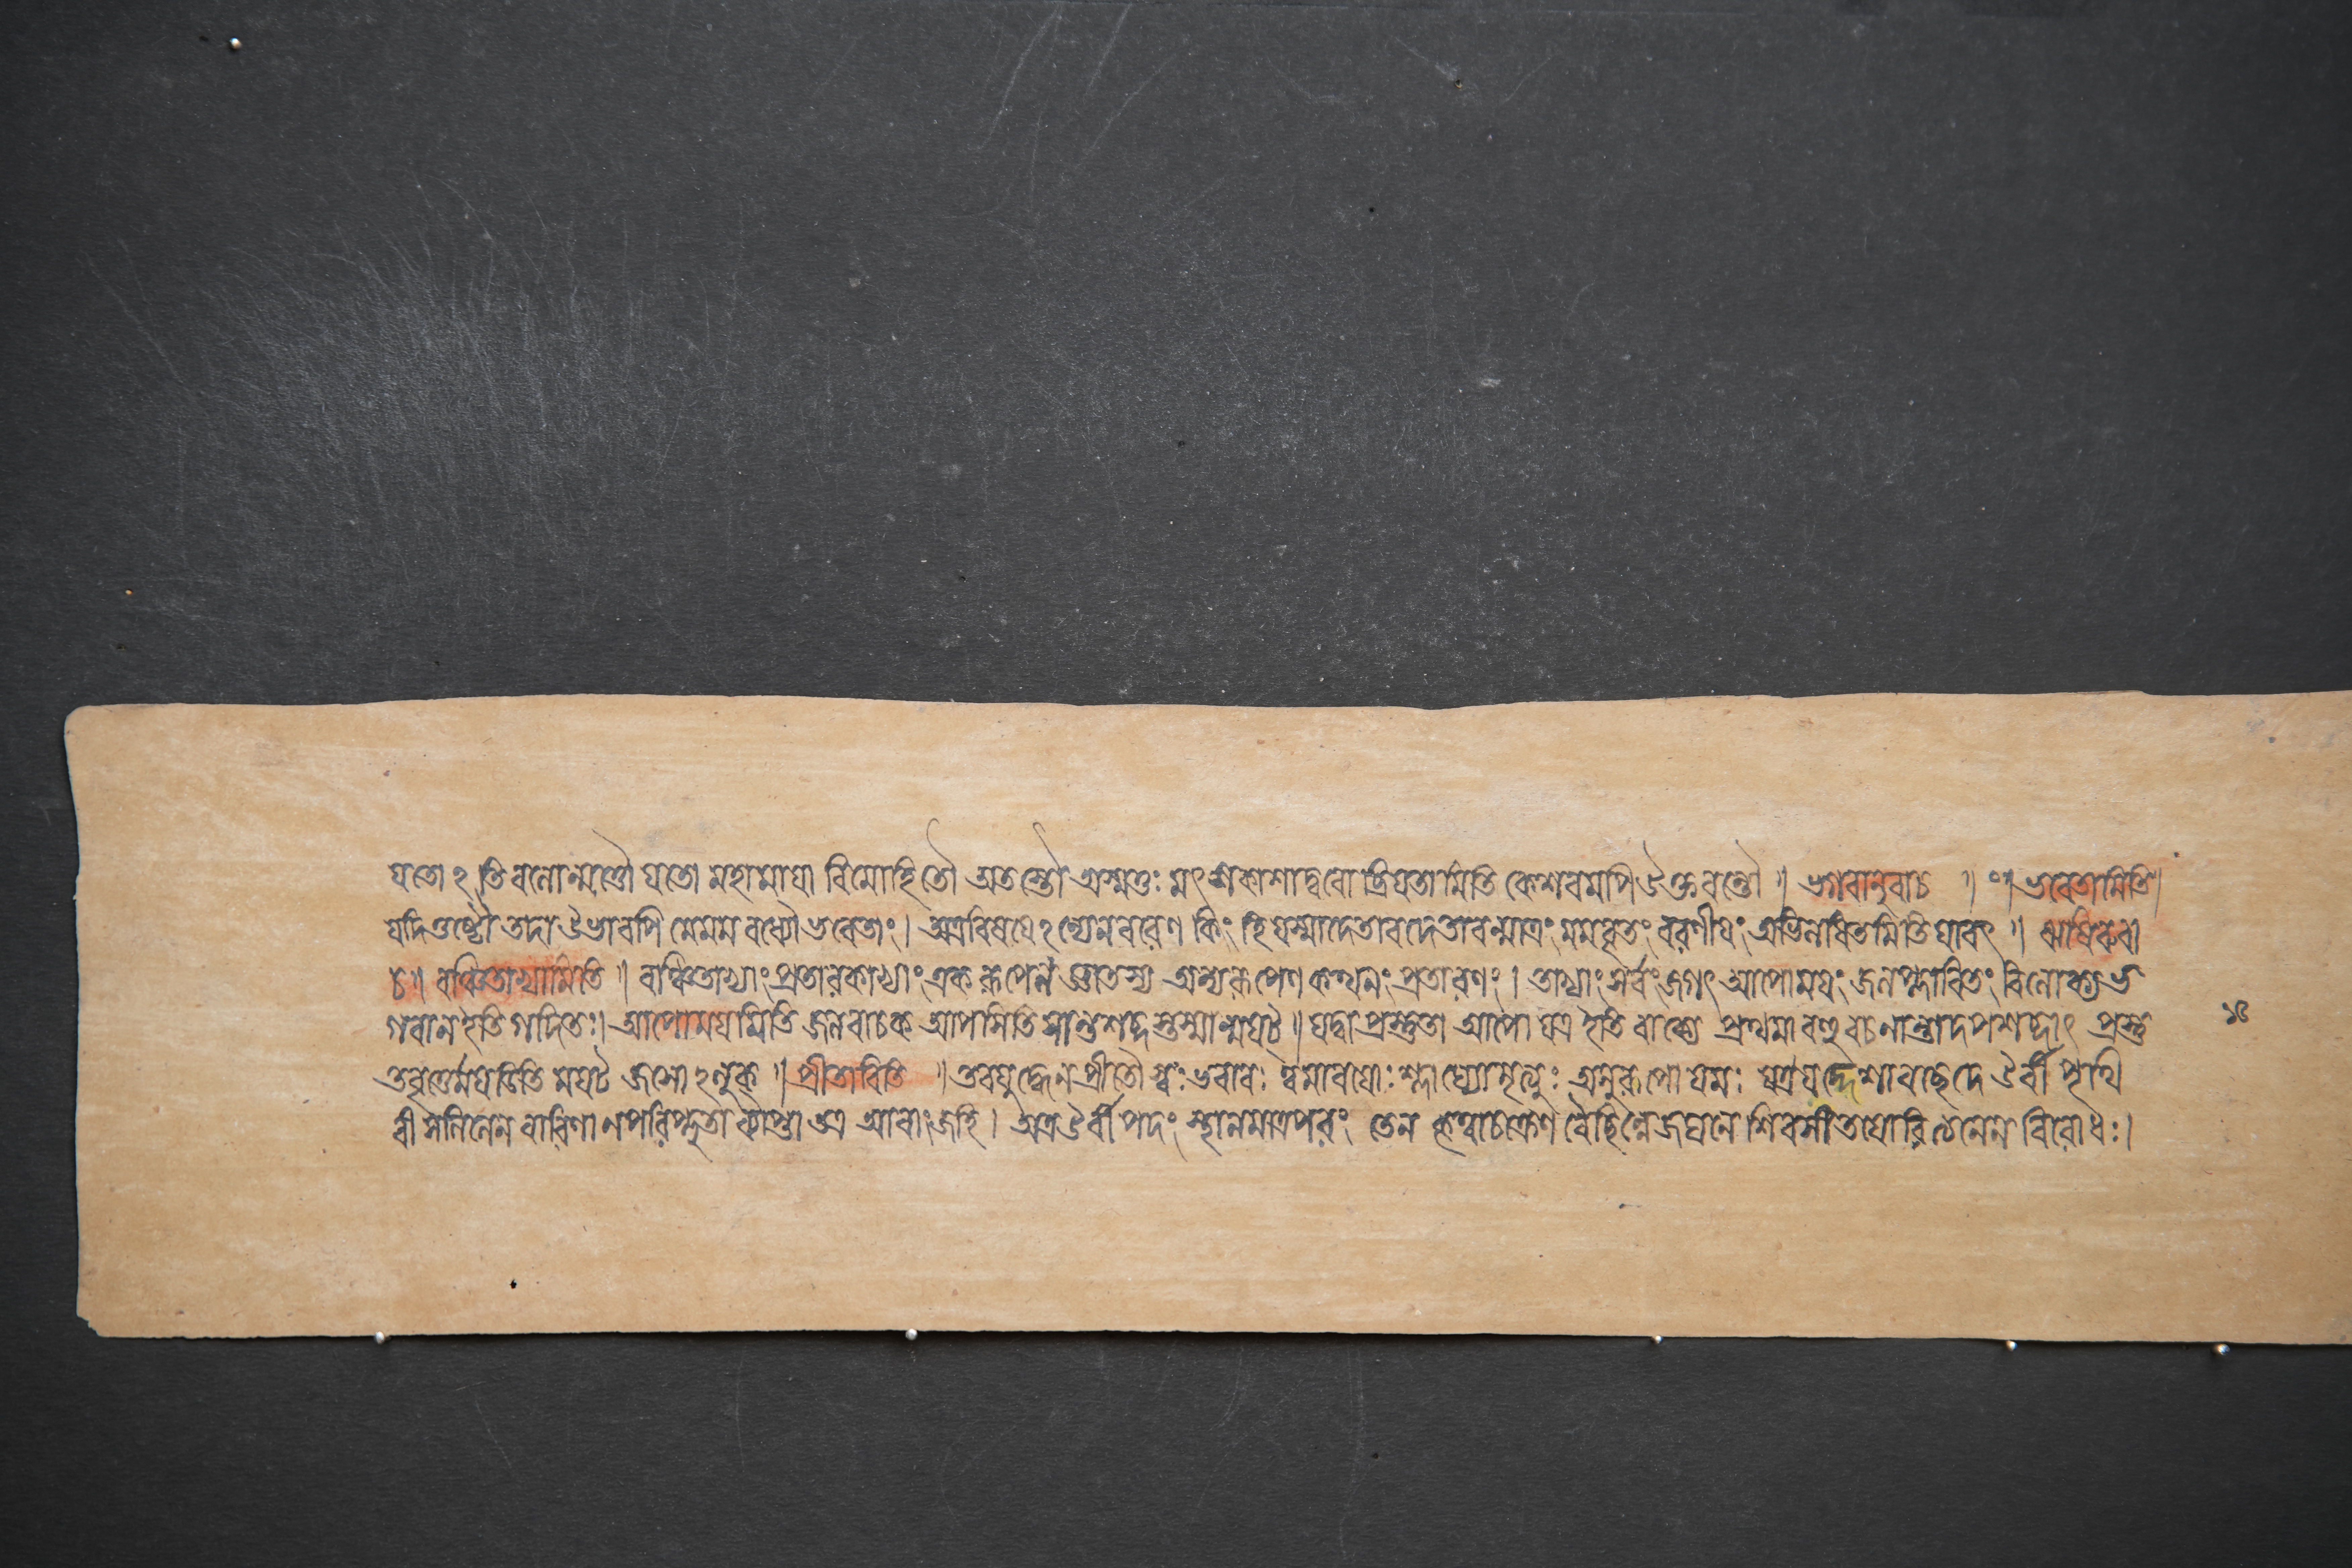 যতোঽতি বলোন্মত্তৌ যতো মহামায়া বিমোহিতৌ অতস্তৌ অস্মত্তঃ মৎসকাশাদ্বরো ব্রিয়তামিতি কেশবমপি ঐ উক্তবন্তৌ ॥ শ্রীভগবানুবাচ ॥ ০ ॥ ভবেতামিতি ॥
যদি তুষ্টৌ তদা উভাবপি মে মম বধ্যৌ ভবেতাং। অত্র বিষয়েঽন্যেন বরেণ কিং হি যস্মাদেতাবদেতাবন্মাত্রং মম বৃতং বরণীয়ং অভিলষিতমিতি যাবৎ ॥ ঋষিরুবা
চ ॥ বঞ্চিতাভ্যামিতি ॥ বঞ্চিতাভ্যাং প্রতারকাভ্যাং একরূপেন জ্ঞাতস্য অন্যরূপেণ কথনং প্রতারণং। তাভ্যাং সর্ব্বং জগৎ আপোময়ং জলপ্লাবিতং বিলোক্য ভ
গবান ইতি গদিতঃ। আপোময়মিতি জলবাচক আপসিতি সান্ত শব্দস্তস্মান্ময়ট্ ॥ যদ্বা প্রস্তুতা আপো যত্র ইতি বাক্যে প্রথমা বহুবচনান্তাদপশব্দাৎ প্রস্তু
তবৃত্তের্ময়ডিতি ময়ট্ জসোঽলুক্ ॥ প্রীতাবিতি ॥ তব যুদ্ধেন প্রীতৌ স্বঃ ভবাবঃ ত্বমাবয়োঃ শ্লাঘ্যো মৃত্যুঃ মৃত্যুরূপো যমঃ যত্র যদ্দেশাবচ্ছেদে উর্ব্বী পৃথি
বী সলিলেন বারিণা ন পরিপ্লুতা ব্যাপ্তা তত্র আবাং জহি। অত্র উর্ব্বী পদং স্থানমাত্রপরং তেন কৃত্বা চক্রেণ বৈ ছিন্নে জঘনে শিরসী তয়োরিত্যনেন ন বিরোধঃ।
১৫